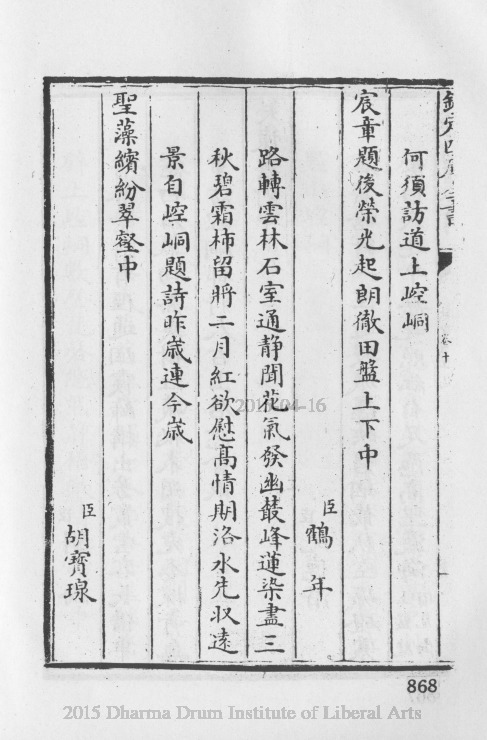 欽定四庫全書
卷十
何須訪道上崆峒
宸章題後榮光起朗徹田盤上下中
臣鶴年
路轉雲林石室通靜聞花氣發幽叢峰蓮染盡三
秋碧霜柿留將二月紅欲慰高情期洛水先収遠
景自崆峒題詩昨歲連今歲
聖藻繽紛翠壑中
臣胡寶瑔
2015-04-16
868
2015 Dharma Drum Institute of Liberal Arts